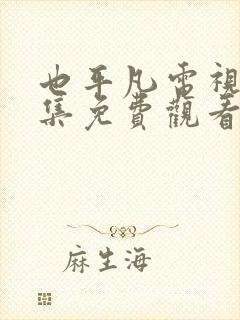 也平凡電視
集免費觀看
麻生海